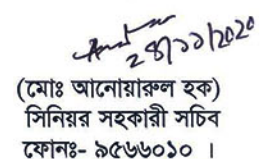 ২৪/১১/২০২০
(মোঃ আনোয়ারুল হক)
সিনিয়র সহকারী সচিব
ফোনঃ- ৯৫৬৬০১০ ।